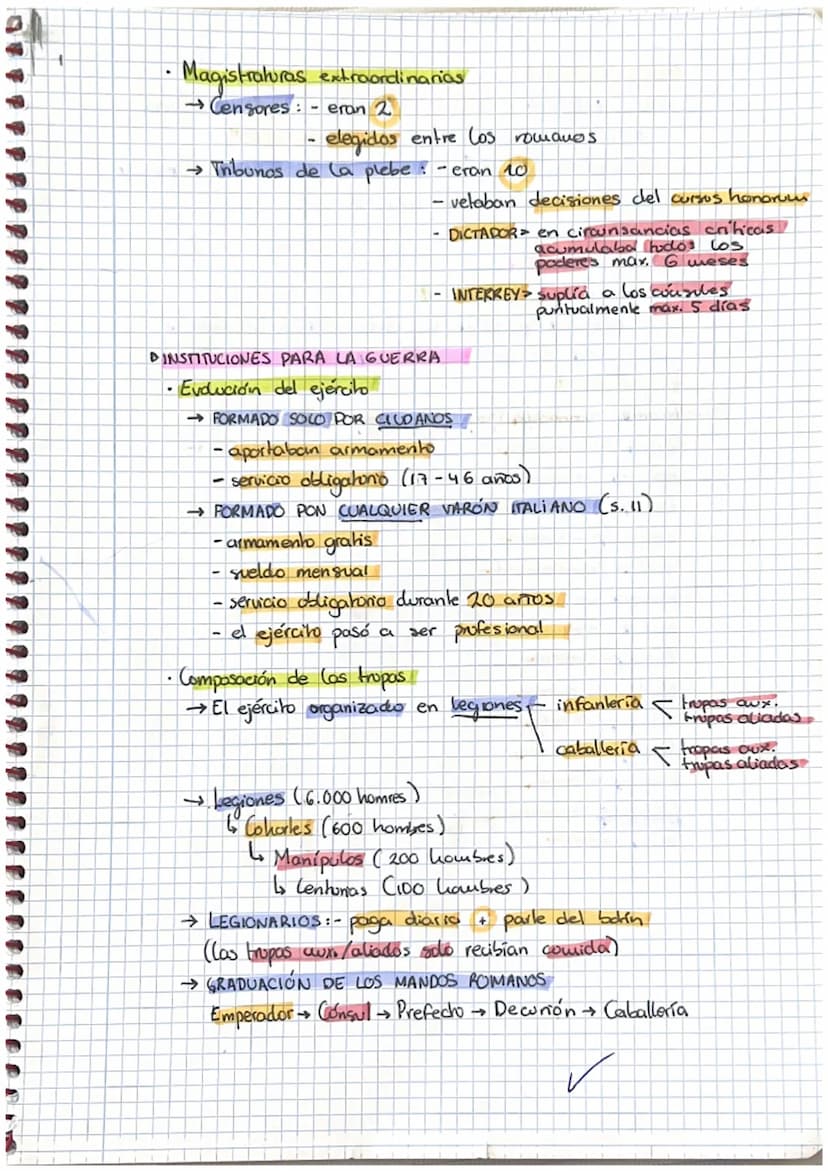 · Magistraturas extraordinarias
→ Censores: - eran 2
- elegidos entre los romanos
→ Tribunos de la plebe: - eran 10
- vetaban decisiones del cursus honorum
- DICTADOR> en circunsancias críticas
acumulaba todos los
poderes max. 6 meses
- INTERREY> suplía a los cónsules
puntualmente max. 5 días
INSTITUCIONES PARA LA GUERRA
· Evolución del ejército
→ FORMADO SOLO POR CIUDANOS
- aportaban armamento
- servicio obligatorio (17-46 años)
→ FORMADO PON CUALQUIER VARÓN ITALIANO (s. II)
- armamento gratis
- sueldo mensual
- servicio obligatorio durante 20 años
- el ejército pasó a ser profesional
· Composoción de las tropas
→ El ejército organizado en legiones - infantería < tropas aux.
tropas aliadas
caballería < tropas aux.
tropas aliadas
→ Legiones (6.000 homres)
↳ Cohortes (600 hombres)
↳ Manípulos (200 hombres)
↳ Centurias (100 hombres)
→ LEGIONARIOS: - paga diaria + parte del botín
(las tropas aux./aliados solo recibían comida)
→ GRADUACIÓN DE LOS MANDOS ROMANOS
Emperador → Cónsul → Prefecto → Decurión → Caballería